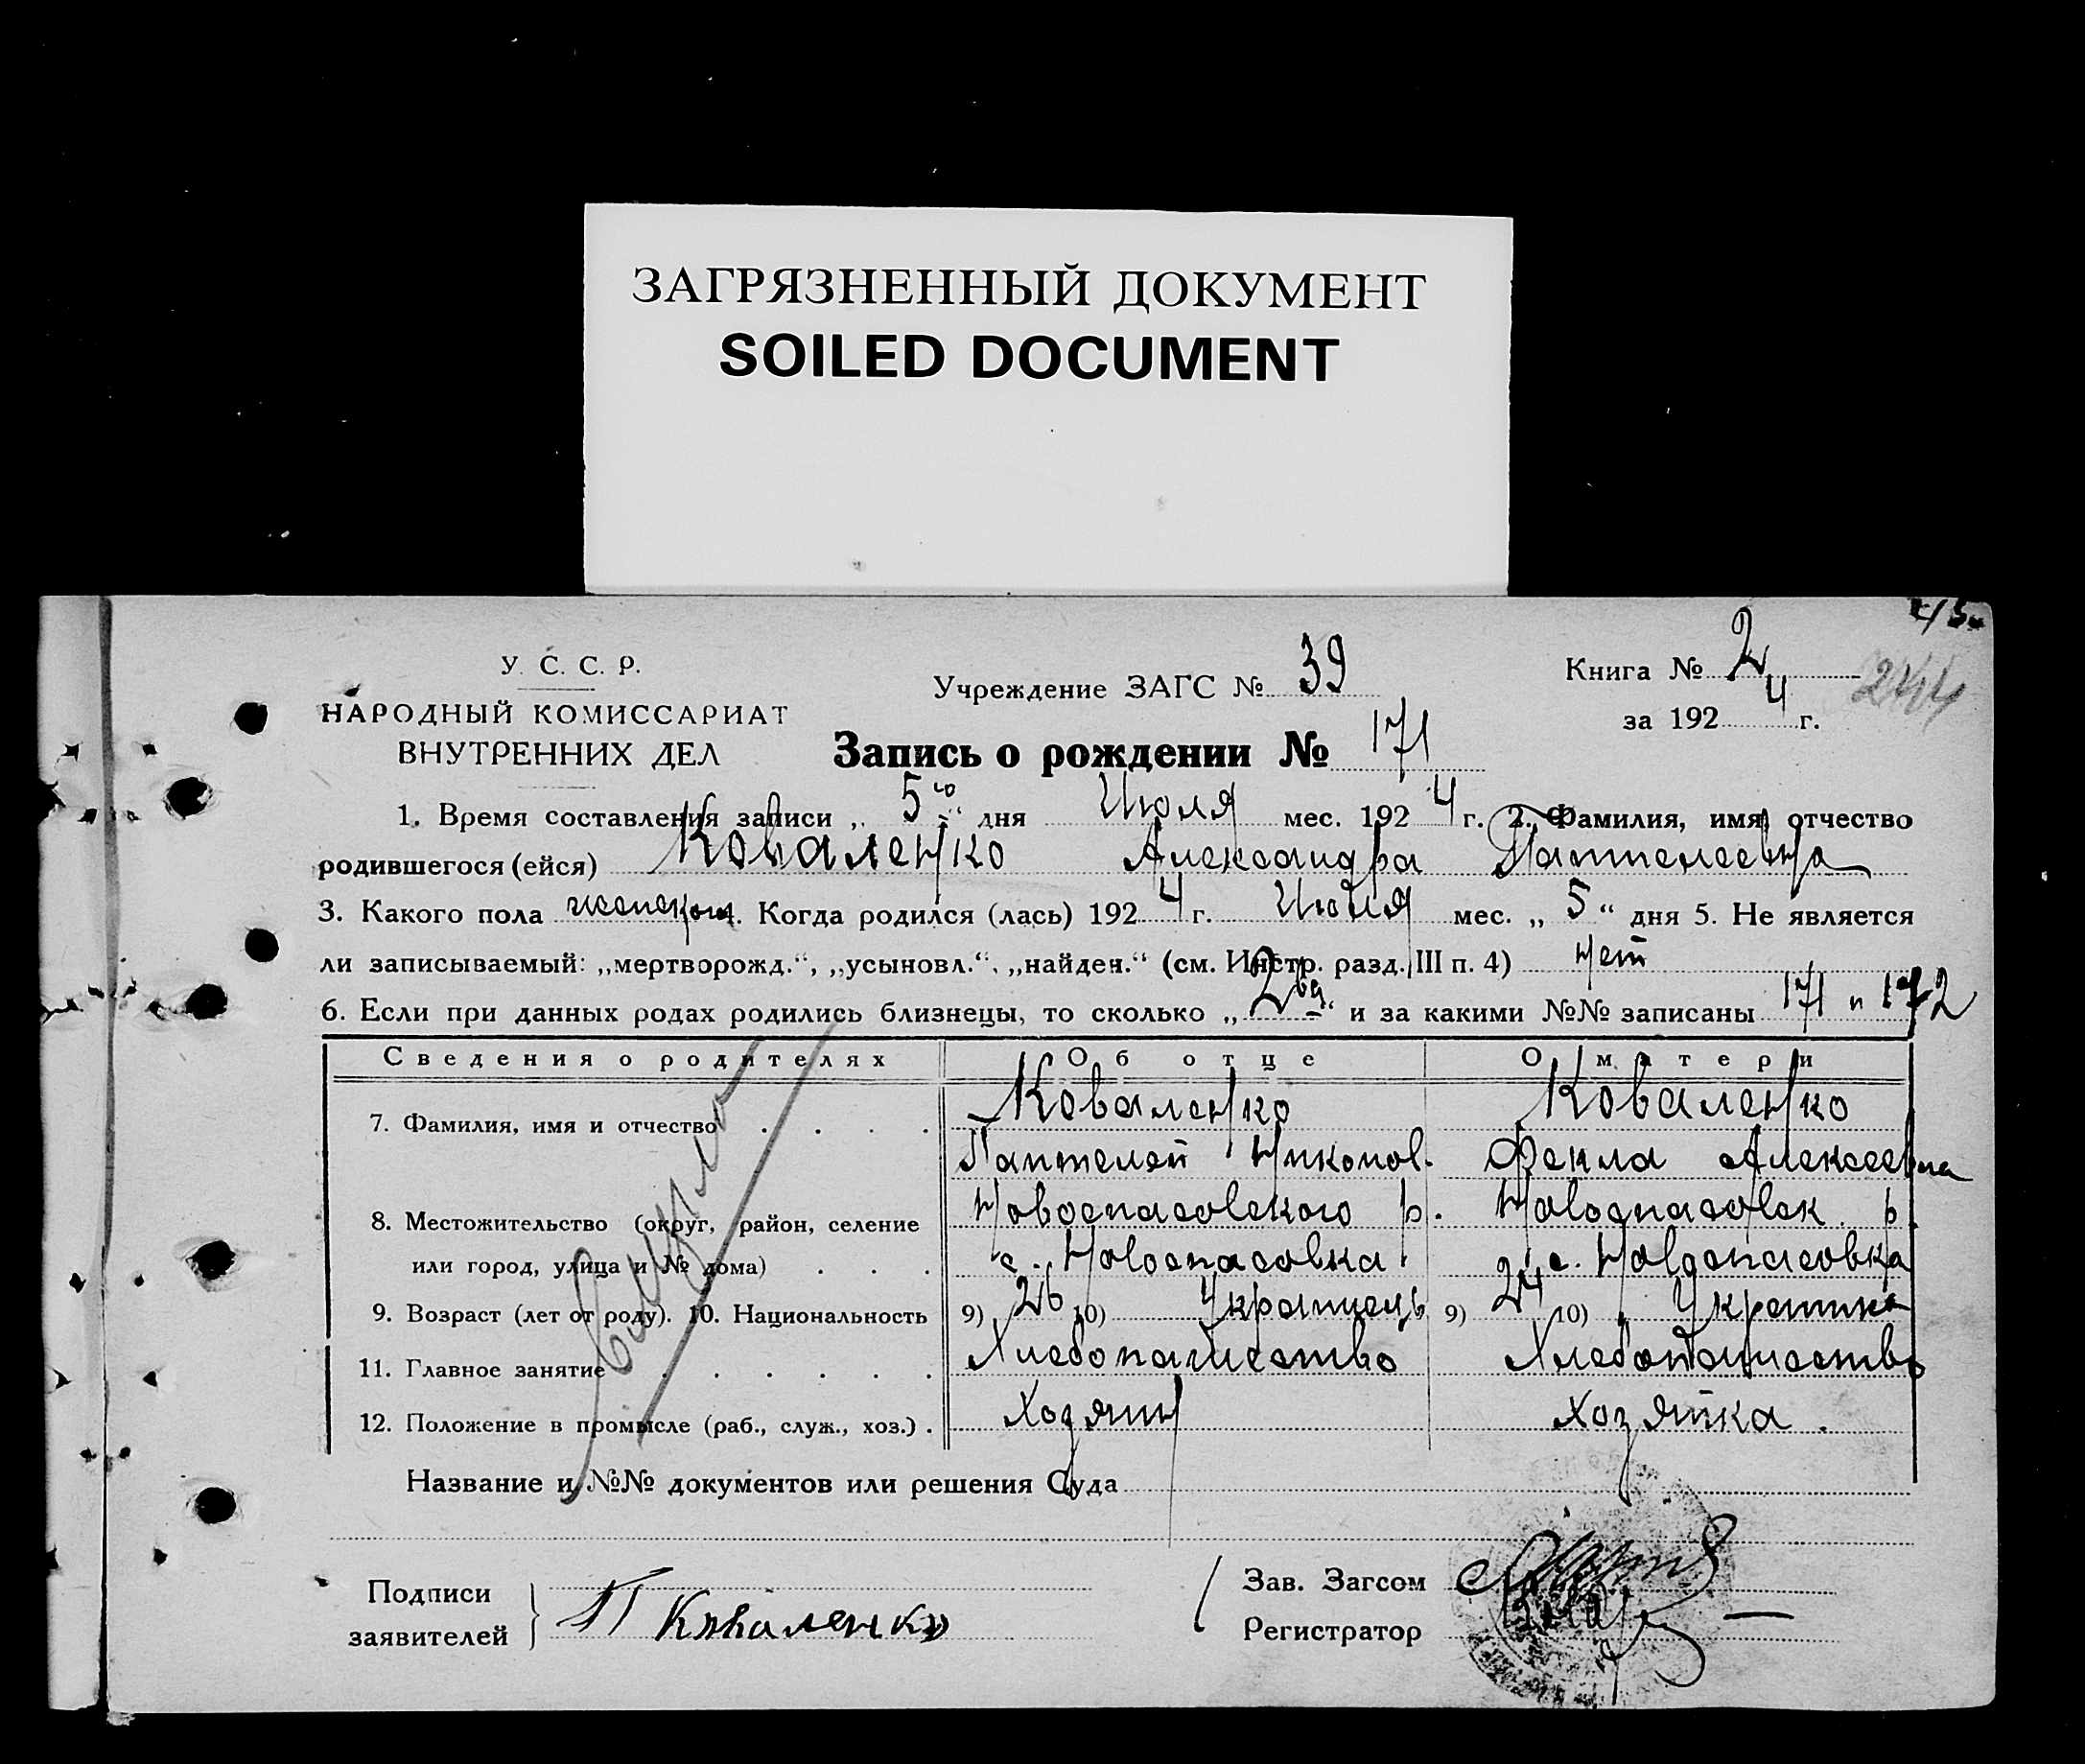 ЗАГРЯЗНЕННЫЙ ДОКУМЕНТ
SOILED DOCUMENT
У. С. С. Р.
НАРОДНЫЙ КОМИССАРИАТ
ВНУТРЕННИХ ДЕЛ
Учреждение ЗАГС № 39
Книга № 2
244
за 192 4 г.
Запись о рождении № 171
1. Время составления записи „ 5го “ дня Июля мес. 192 4 г. 2. Фамилия, имя, отчество
родившегося (ейся) Коваленко Александра Пантелеевна
3. Какого пола женского 4. Когда родился (лась) 192 4 г. Июля мес. „ 5 “ дня 5. Не является
ли записываемый: „мертворожд.“, „усыновл.“, „найден.“ (см. Инстр. разд. III п. 4) нет
6. Если при данных родах родились близнецы, то сколько „ 2 “ и за какими №№ записаны 171 и 172
Сведения о родителях Об отце О матери
7. Фамилия, имя и отчество . . . . Коваленко Коваленко
Пантелей Никонов. Фекла Алексеевна
8. Местожительство (округ, район, селение Новоспасовского р. Новоспасовск. р.
или город, улица и № дома) . . . с. Новоспасовка с. Новоспасовка
9. Возраст (лет от роду). 10. Национальность 9) 26 10) Украинець 9) 24 10) Украинка
11. Главное занятие . . . . . . Хлебопашество Хлебопашество
12. Положение в промысле (раб., служ., хоз.) . Хозяин Хозяйка.
Название и №№ документов или решения Суда
Подписи
заявителей
П Коваленко
Зав. Загсом
Регистратор